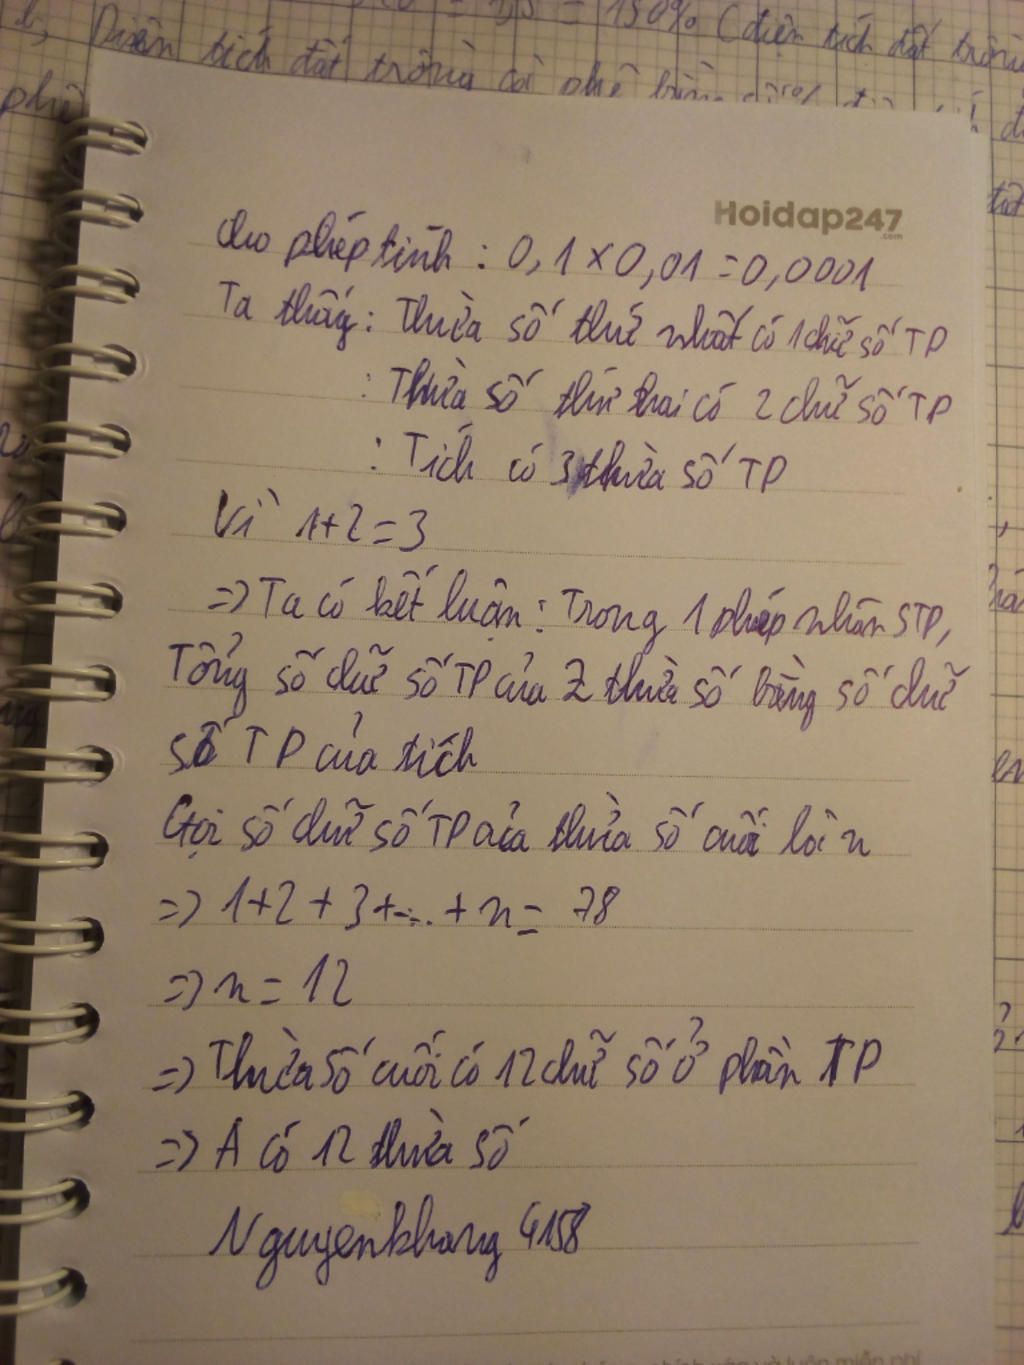 = 150% (diện tích đất trồng
Diện tích đất trồng cà phê bằng
phê
Hoidap247
.com
Cho phép tính : 0,1 × 0,01 = 0,0001
Ta thấy : Thừa số thứ nhất có 1 chữ số TP
: Thừa số thứ hai có 2 chữ số TP
: Tích có 3 thừa số TP
Vì 1+2=3
=> Ta có kết luận : Trong 1 phép nhân STP,
Tổng số chữ số TP của 2 thừa số bằng số chữ
số TP của tích
Gọi số chữ số TP của thừa số cuối là n
=> 1+2+3+...+n= 78
=> n= 12
=> Thừa số cuối có 12 chữ số ở phần TP
=> A có 12 thừa số
Nguyenkhang 4158